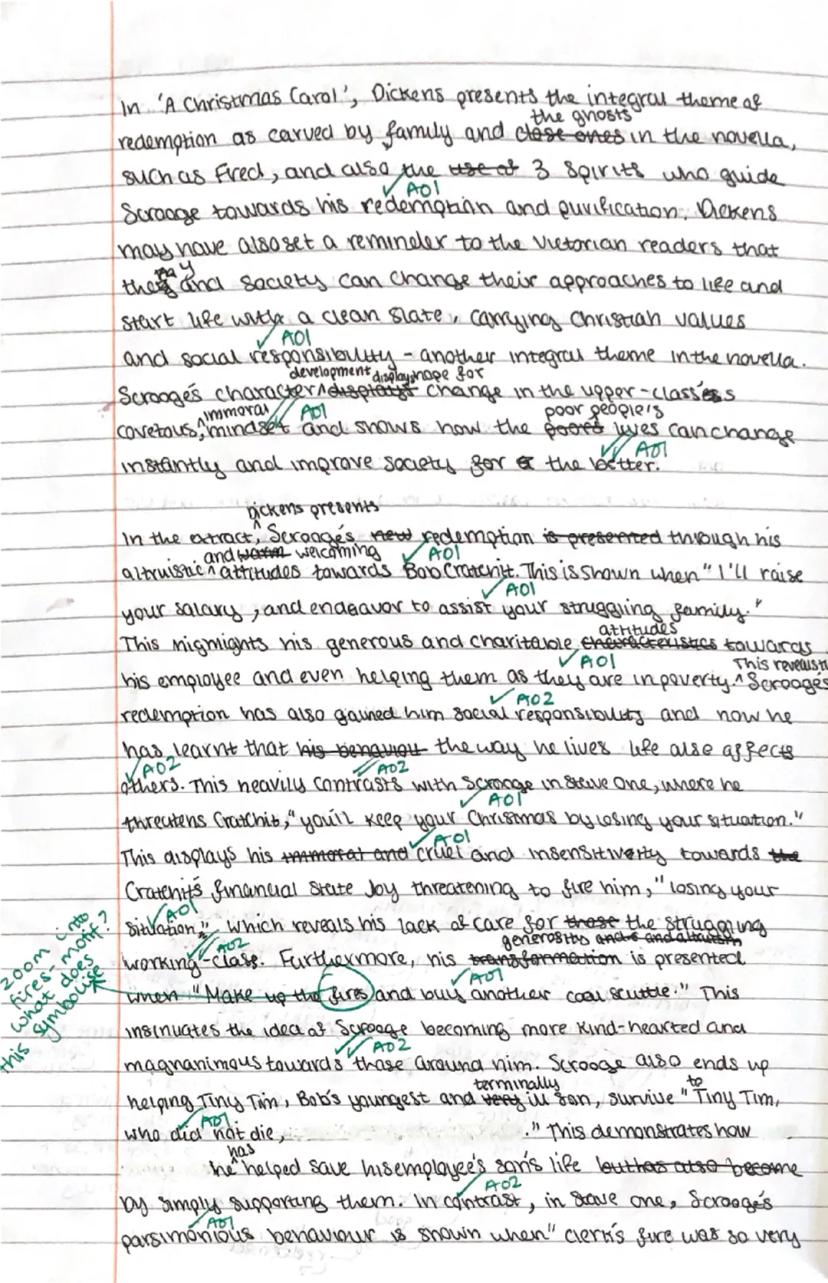 In 'A Christmas Carol', Dickens presents the integral theme of
the ghosts
redemption as carved by family and close ones in the novella,
such as Fred, and also the use of 3 spirits who guide
✓ AO1
Scrooge towards his redemption and purification. Dickens
may have also set a reminder to the Victorian readers that
they and society can change their approaches to life and
start life with a clean slate, carrying Christian values
✓ AO1
and social responsibility - another integral theme in the novella.
development displays hope for
Scrooge's character ^ displays change in the upper-class's
immoral ✓✓ AO1 poor people's
covetous, ^ mindset and shows how the poors lives can change
✓✓ AO1
instantly and improve society for the better.
Dickens presents
In the extract, ^ Scrooge's new redemption is presented through his
and warm welcoming ✓ AO1
altruistic ^ attitudes towards Bob Cratchit. This is shown when "I'll raise
✓ AO1
your salary, and endeavor to assist your struggling family."
attitudes
This highlights his generous and charitable characteristics towards
✓ AO1 This reveals
his employee and even helping them as they are in poverty. ^ Scrooge's
✓ AO2
redemption has also gained him social responsibility and now he
has learnt that his behaviour the way he lives life also affects
✓ AO2 ✓✓ AO2
others. This heavily contrasts with Scrooge in stave one, where he
✓ AO1
threatens Cratchit, "you'll keep your Christmas by losing your situation."
✓ AO1
This displays his immoral and cruel and insensitivity towards the
Cratchit's financial state by threatening to fire him, "losing your
✓ AO1
situation", which reveals his lack of care for those the struggling
✓✓ AO2 generosity
working-class. Furthermore, his transformation is presented
✓ AO1
when "Make up the fires and buy another coal scuttle." This
zoom into
fires - motif?
what does
this symbolise
insinuates the idea of Scrooge becoming more kind-hearted and
✓✓ AO2
magnanimous towards those around him. Scrooge also ends up
terminally to
helping Tiny Tim, Bob's youngest and very ill son, survive "Tiny Tim,
✓ AO1
who did not die, ." This demonstrates how
has
he ^ helped save his employee's son's life but has also become
✓ AO2
by simply supporting them. In contrast, in stave one, Scrooge's
✓ AO1
parsimonious behaviour is shown when "clerk's fire was so very